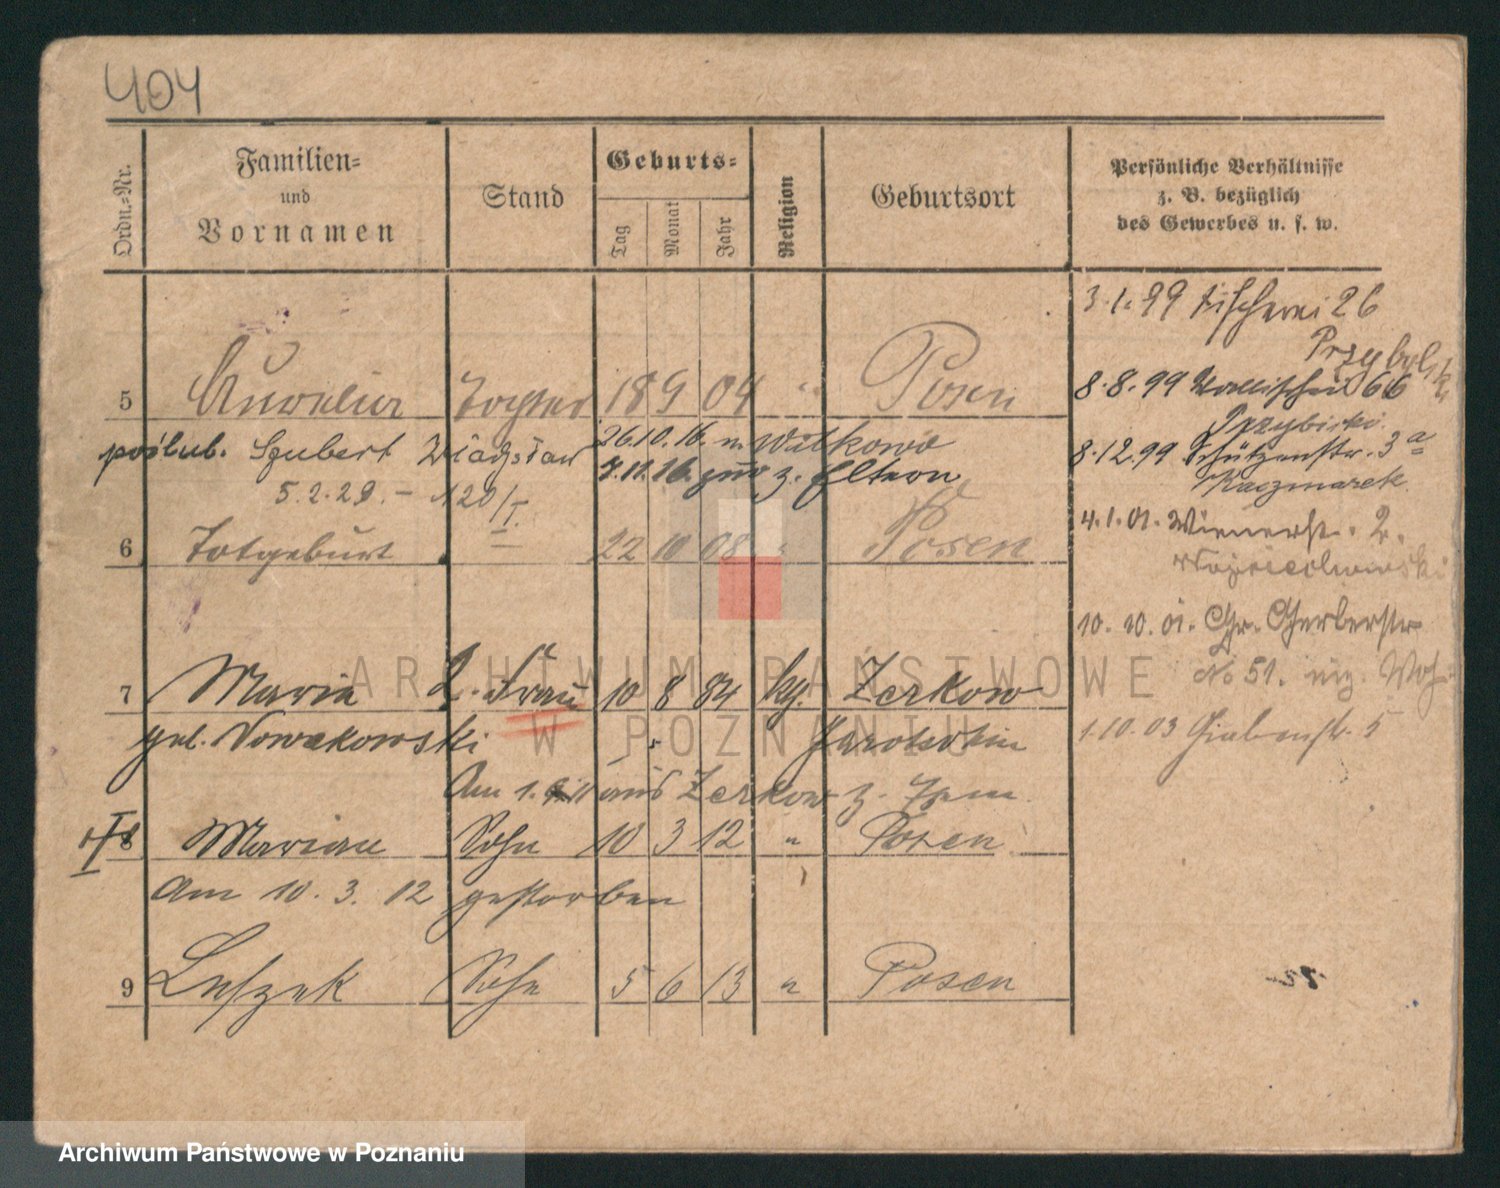 404
Ordn.-Nr.
Familien-
und
Vornamen
Stand
Geburts-
Tag
Monat
Jahr
Religion
Geburtsort
Persönliche Verhältnisse
z. B. bezüglich
des Gewerbes u. s. w.
3.1.99 Fischerei 26
8.8.99 Wallischei 66
Przybylski
8.12.99 Schützenstr. 3a
Kaczmarek
4.1.01. Wienerstr. 2.
Wojciechowski
10.10.01. Gr. Gerberstr
No 51.
1.10.03 Grabenstr. 5
5 Aurelia Tochter 18 9 04 " Posen
poślub. Szubert Władysław 26.10.16. n. Witkowo
5.2.29. – 120/I. 7.11.16. zur z. Eltern
6 Totgeburt – 22 10 08 " Posen
7 Maria 2. Frau 10 8 84 kg. Zerkow
geb. Nowakowski Jarotschin
Am 1. 11 aus Zerkow z.
8 Marian Sohn 10 3 12 " Posen
Am 10.3.12 gestorben
9 Leszek Sohn 5 6 13 " Posen
ARCHIWUM PAŃSTWOWE
W POZNANIU
Archiwum Państwowe w Poznaniu